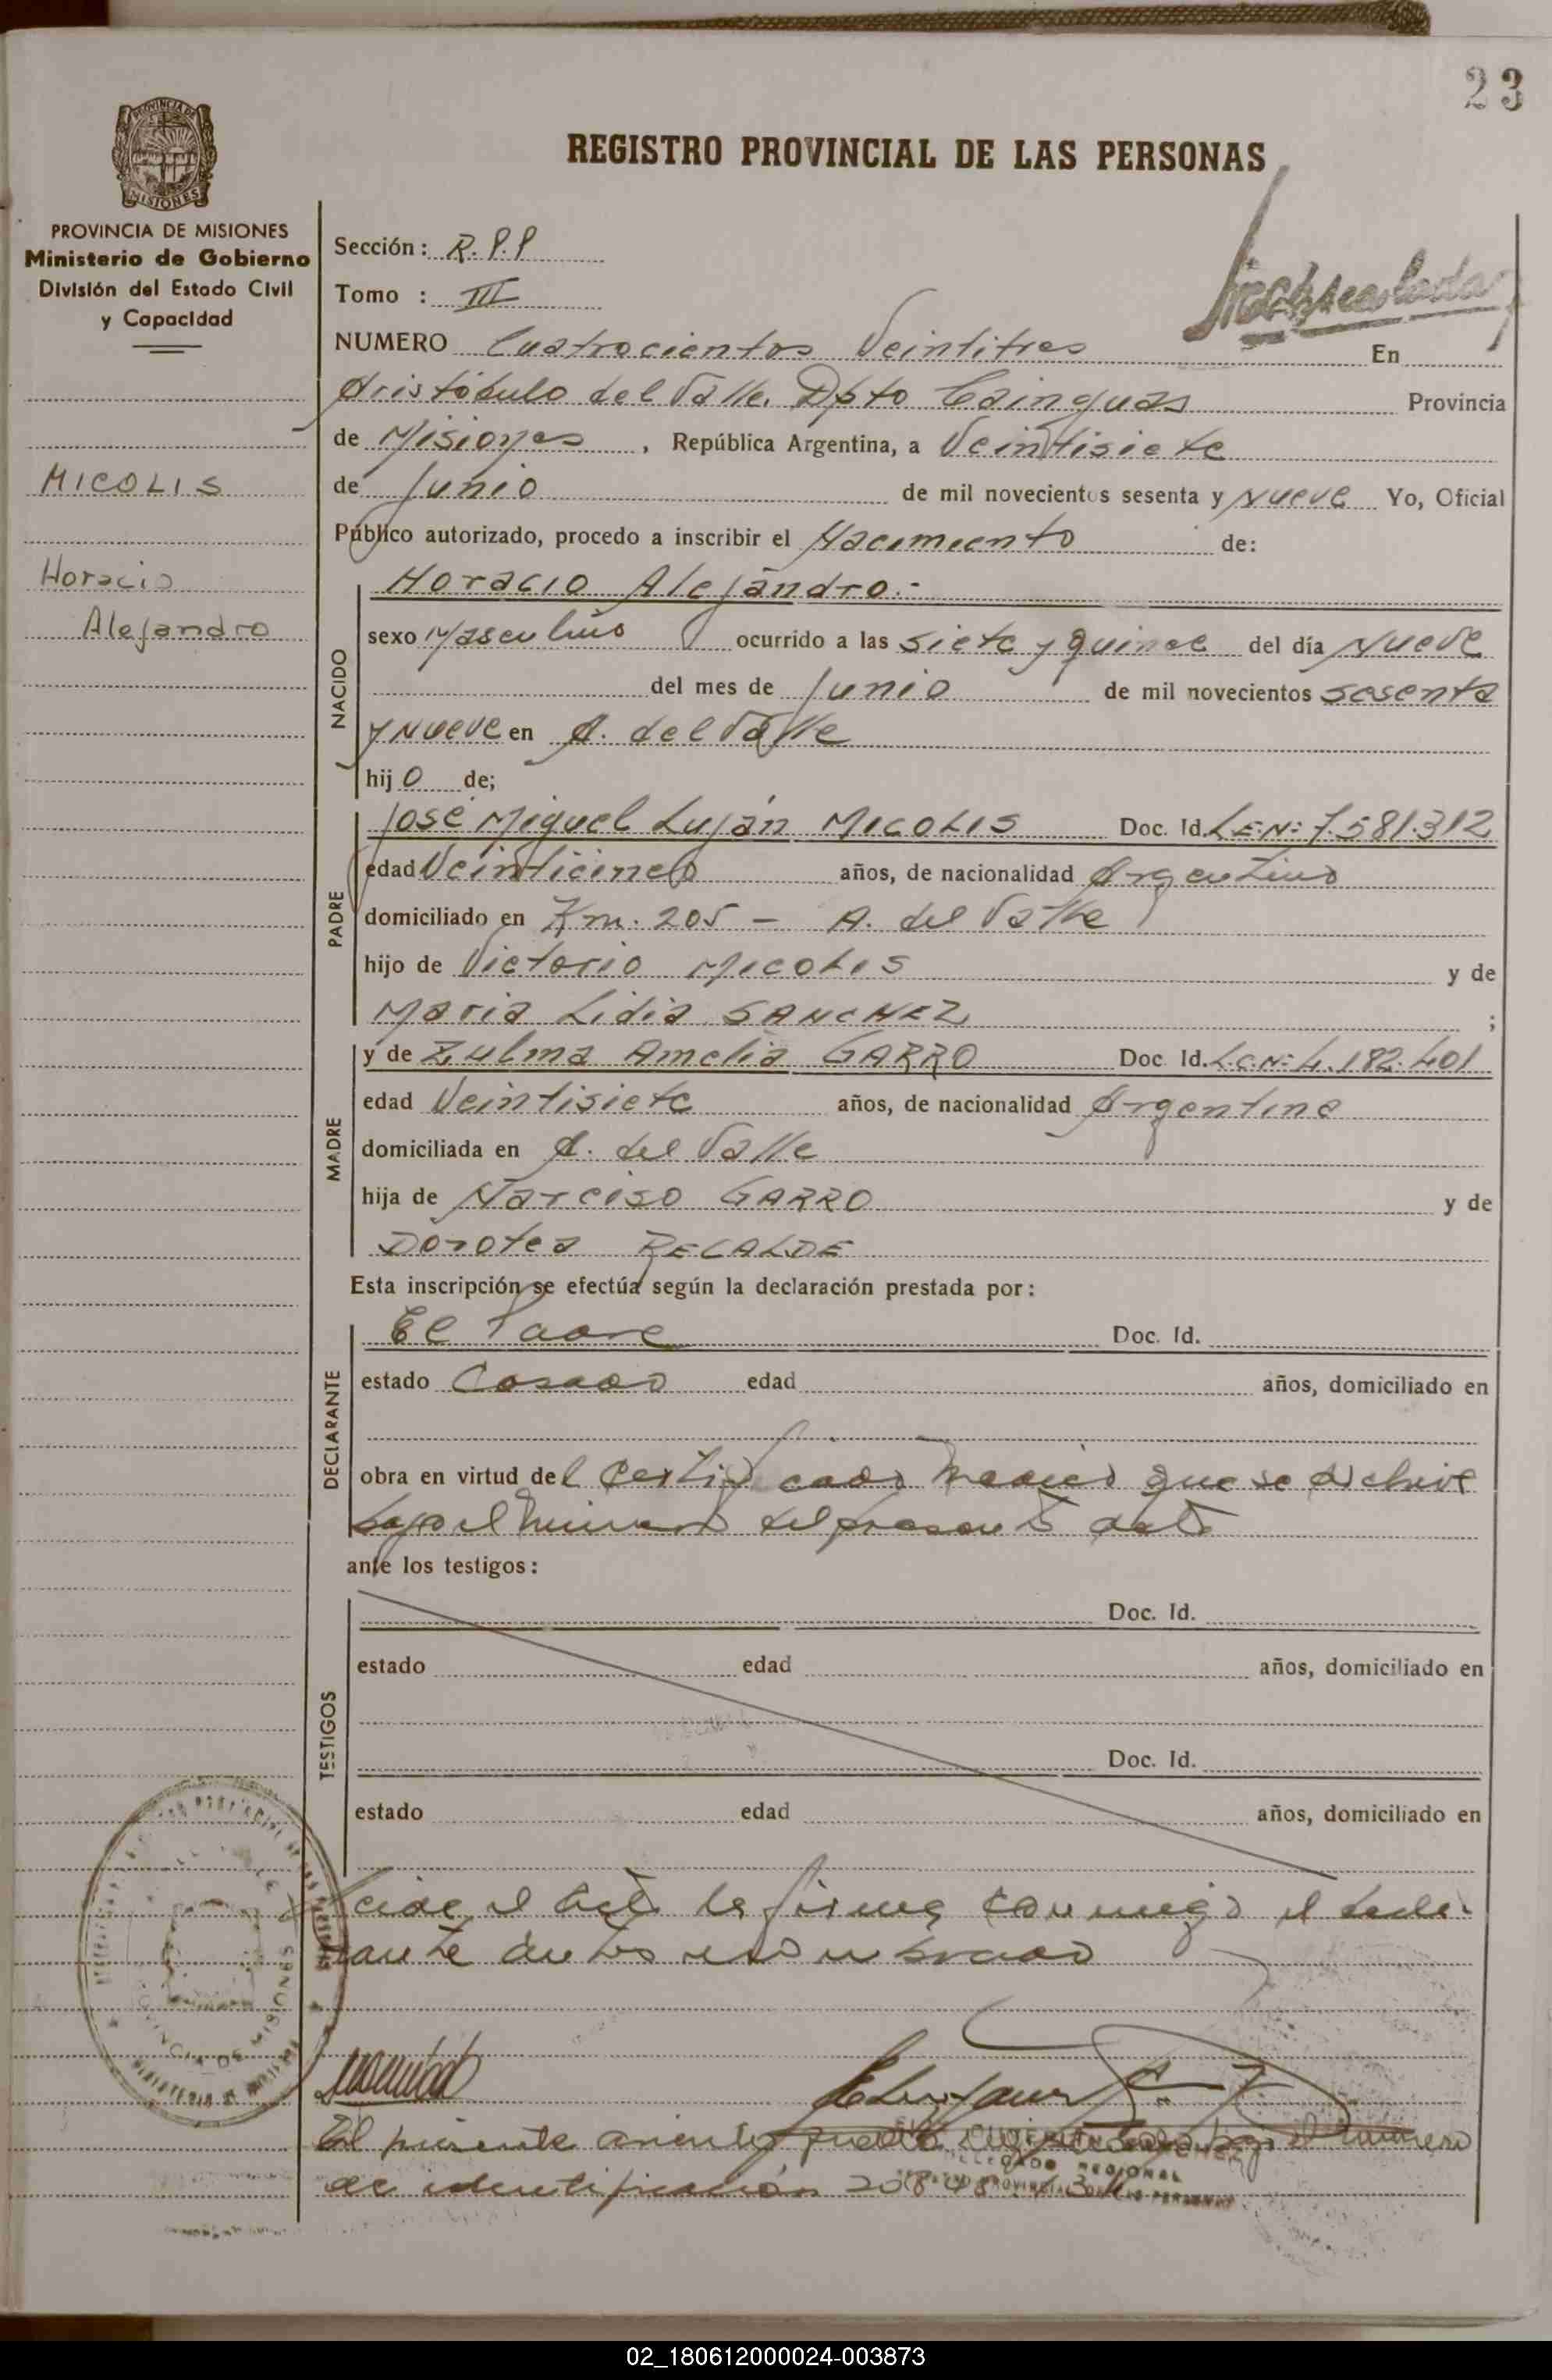 23
REGISTRO PROVINCIAL DE LAS PERSONAS
PROVINCIA DE MISIONES
Ministerio de Gobierno
División del Estado Civil
y Capacidad
MICOLIS
Horacio
Alejandro
Sección: R.P.P
Tomo : III
NUMERO Cuatrocientos Veintitres En
Aristóbulo del Valle. Dpto Cainguas Provincia
de Misiones, República Argentina, a Veintisiete
de Junio de mil novecientos sesenta y Nueve Yo, Oficial
Público autorizado, procedo a inscribir el Nacimiento de:
NACIDO
Horacio Alejandro.-
sexo Masculino ocurrido a las siete y quince del día Nueve
del mes de Junio de mil novecientos sesenta
y Nueve en A. del Valle
hijo de;
PADRE
José Miguel Luján MICOLIS Doc. Id. L.E.N: 7.581.312
edad Veinticinco años, de nacionalidad Argentino
domiciliado en Km. 205 - A. del Valle
hijo de Victorio MICOLIS y de
Maria Lidia SANCHEZ ;
MADRE
y de Zulma Amelia GARRO Doc. Id. L.C.N: 4.182.401
edad Veintisiete años, de nacionalidad Argentina
domiciliada en A. del Valle
hija de Narciso GARRO y de
Dorotea RECALDE
Esta inscripción se efectúa según la declaración prestada por:
DECLARANTE
El Padre Doc. Id.
estado Casado edad años, domiciliado en
obra en virtud del Certificado medico que se archive
bajo el numero del presente acto
ante los testigos:
TESTIGOS
Doc. Id.
estado edad años, domiciliado en
Doc. Id.
estado edad años, domiciliado en
el acta la firma conmigo el decla-
rante antes nombrado
El presente asiento por el número
de identificación
DELEGADO REGIONAL
PROVINCIA DE MISIONES
02_180612000024-003873